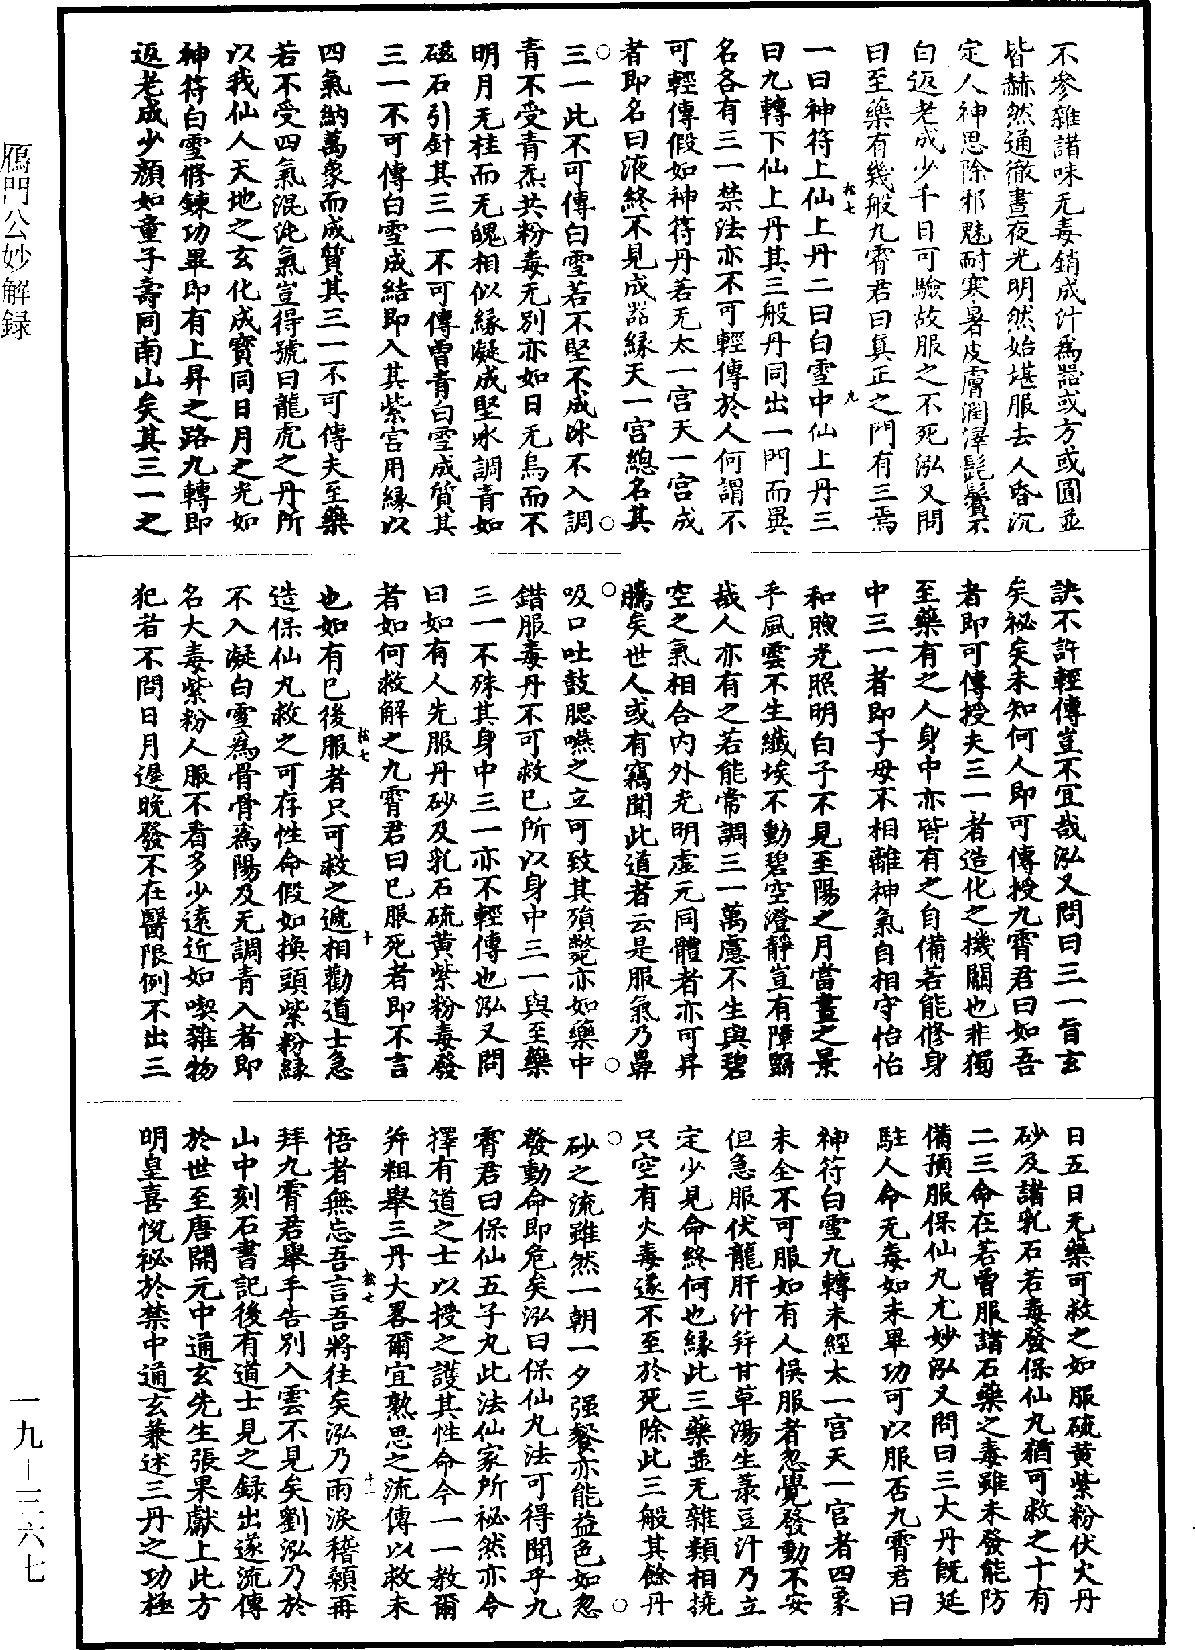 不參雜諸味无毒銷成汁為器或方或圓並
皆赫然通徹晝夜光明然始堪服去人昏沉
定人神思除邪魅耐寒暑皮膚潤澤髭鬢不
白返老成少千日可驗故服之不死泓又問
曰至藥有幾般九霄君曰真正之門有三焉
一曰神符上仙上丹二曰白雪中仙上丹三
曰九轉下仙上丹其三般丹同出一門而異
名各有三一禁法亦不可輕傳於人何謂不
可輕傳假如神符丹若无太一宮天一宮成
者即名曰液終不見成器緣天一宮總名其
三一此不可傳白雪若不堅不成冰不入調
青不受青炁共粉毒无別亦如日无烏而不
明月无桂而无魄相似緣凝成堅冰調青如
磁石引針其三一不可傳曾青白雪成質其
三一不可傳白雪成結即入其紫宮用緣以
四氣納萬象而成質其三一不可傳夫至藥
若不受四氣混沌氣豈得號曰龍虎之丹所
以我仙人天地之玄化成寶同日月之光如
神符白雪修鍊功畢即有上昇之路九轉即
返老成少顏如童子壽同南山矣其三一之
訣不許輕傳豈不宜哉泓又問曰三一旨玄
矣祕矣未知何人即可傳授九霄君曰如吾
者即可傳授夫三一者造化之機關也非獨
至藥有之人身中亦皆有之自備若能修身
中三一者即子母不相離神氣自相守怡怡
和煦光照明白子不見至陽之月當晝之景
乎風雲不生纖埃不動碧空澄靜豈有障翳
哉人亦有之若能常調三一萬慮不生與碧
空之氣相合內外光明虛元同體者亦可昇
騰矣世人或有竊聞此道者云是服氣乃鼻
吸口吐鼓腮嚥之立可致其殞斃亦如藥中
錯服毒丹不可救巳所以身中三一與至藥
三一不殊其身中三一亦不輕傳也泓又問
曰如有人先服丹砂及乳石硫黃紫粉毒發
者如何救解之九霄君曰巳服死者即不言
也如有巳後服者只可救之遞相勸道士急
造保仙丸救之可存性命假如換頭紫粉緣
不入凝白雪為骨骨為陽及无調青入者即
名大毒紫粉人服不看多少遠近如喫雜物
犯若不問日月遲晚發不在醫限例不出三
日五日无藥可救之如服硫黃紫粉伏火丹
砂及諸乳石若毒發保仙丸猶可救之十有
二三命在若曾服諸石藥之毒雖未發能防
備預服保仙丸尤妙泓又問曰三大丹旣延
駐人命无毒如未畢功可以服否九霄君曰
神符白雪九轉未經太一宮天一宮者四象
未全不可服如有人悞服者忽覺發動不安
但急服伏龍肝汁并甘草湯生菉豆汁乃立
定少見命終何也緣此三藥並无雜類相撓
只空有火毒遂不至於死除此三般其餘丹
砂之流雖然一朝一夕强餐亦能益色如忽
發動命即危矣泓曰保仙丸法可得聞乎九
霄君曰保仙五子丸此法仙家所祕然亦令
擇有道之士以授之護其性命今一一教爾
并粗舉三丹大畧爾宜熟思之流傳以救未
悟者無忘吾言吾將往矣泓乃雨淚稽顙再
拜九霄君舉手告別入雲不見矣劉泓乃於
山中刻石書記後有道士見之録出遂流傳
於世至唐開元中通玄先生張果獻上此方
明皇喜悅祕於禁中通玄兼述三丹之功極
松七
九
松七
十
松七
十一
雁門公妙解録
一九—三六七